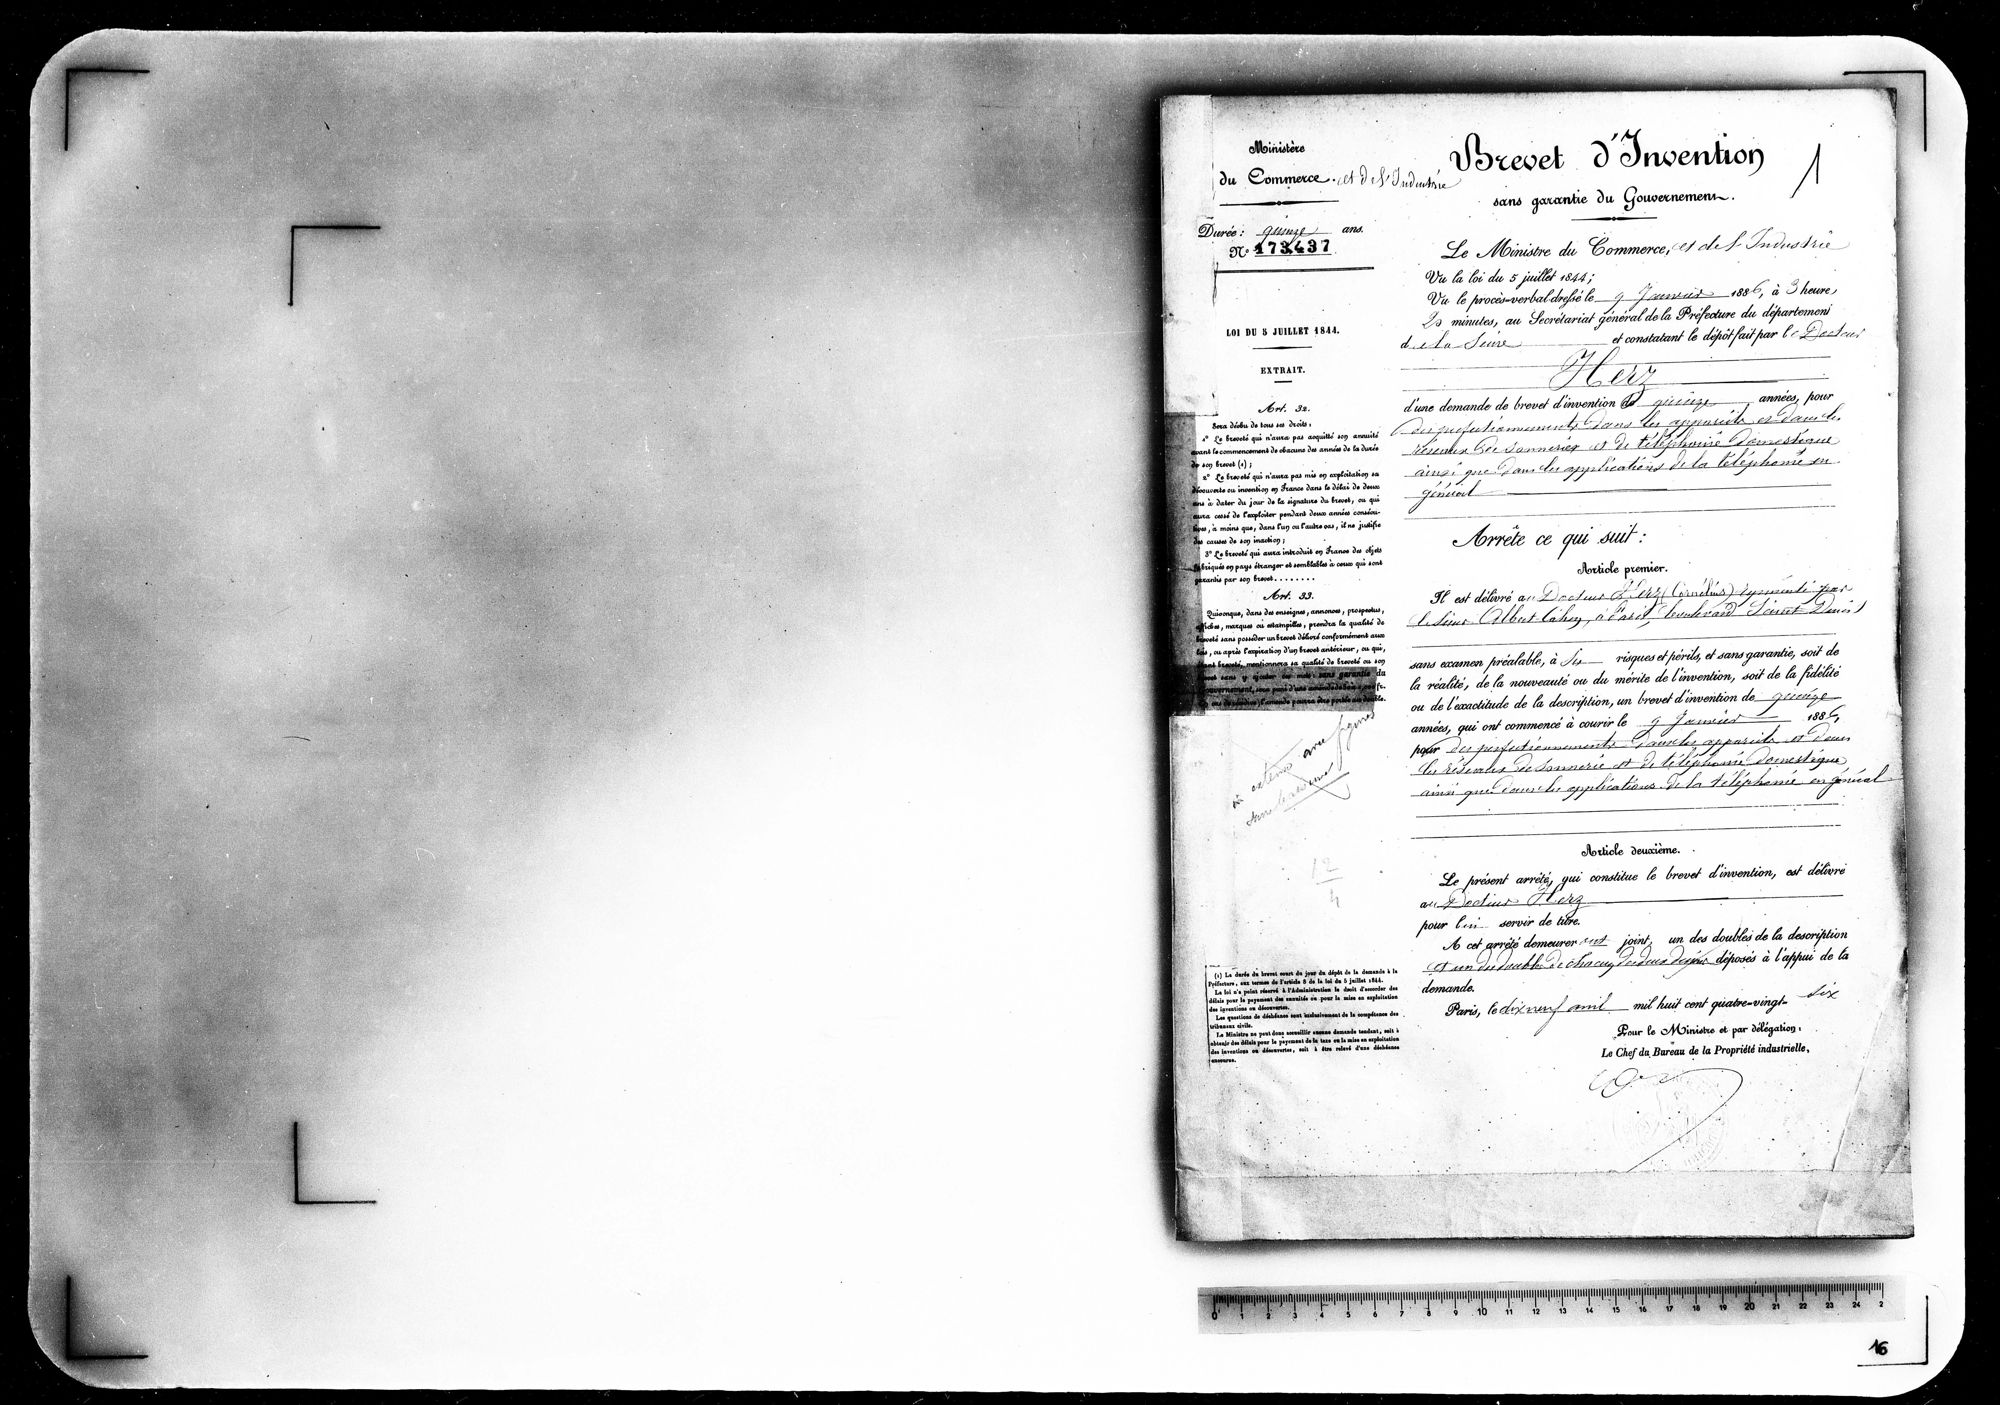 Ministère
du Commerce. et de l'Industrie
Durée : quinze ans.
N° 173.437
LOI DU 5 JUILLET 1844.
EXTRAIT.
Art. 32.
Sera déchu de tous ses droits :
1° Le breveté qui n'aura pas acquitté son annuité
avant le commencement de chacune des années de la durée
de son brevet (1) ;
2° Le breveté qui n'aura pas mis en exploitation sa
découverte ou invention en France dans le délai de deux
ans à dater du jour de la signature du brevet, ou qui
aura cessé de l'exploiter pendant deux années consécu-
tives, à moins que, dans l'un ou l'autre cas, il ne justifie
des causes de son inaction ;
3° Le breveté qui aura introduit en France des objets
fabriqués en pays étranger et semblables à ceux qui sont
garantis par son brevet........
Art. 33.
Quiconque, dans des enseignes, annonces, prospectus,
affiches, marques ou estampilles, prendra la qualité de
breveté sans posséder un brevet délivré conformément aux
lois, ou après l'expiration d'un brevet antérieur, ou qui,
étant breveté, mentionnera sa qualité de breveté ou son
brevet sans y ajouter ces mots : sans garantie du
Gouvernement, sera puni d'une amende de
l'amende pourra être portée au double.
in extenso avec figures
12
4
(1) La durée du brevet court du jour du dépôt de la demande à la
Préfecture, aux termes de l'article 8 de la loi du 5 juillet 1844.
La loi n'a point réservé à l'Administration le droit d'accorder des
délais pour le payement des annuités ou pour la mise en exploitation
des inventions ou découvertes.
Les questions de déchéance sont exclusivement de la compétence des
tribunaux civils.
Le Ministre ne peut donc accueillir aucune demande tendant, soit à
obtenir des délais pour le payement de la taxe ou la mise en exploitation
des inventions ou découvertes, soit à être relevé d'une déchéance
encourue.
Brevet d'Invention
1
sans garantie du Gouvernement.
Le Ministre du Commerce, et de l'Industrie
Vu la loi du 5 juillet 1844 ;
Vu le procès-verbal dressé le 9 Janvier 1886, à 3 heures
20 minutes, au Secrétariat général de la Préfecture du département
de la Seine et constatant le dépôt fait par le Docteur
Herz
d'une demande de brevet d'invention de quinze années, pour
des perfectionnements dans les appareils et dans les
réseaux de sonneries et de téléphonie domestique
ainsi que dans les applications de la téléphonie en
général
Arrête ce qui suit :
Article premier.
Il est délivré au Docteur Herz (Cornélius) représenté par
le sieur Albert Cahen, à Paris, boulevard Saint Denis 1
sans examen préalable, à ses risques et périls, et sans garantie, soit de
la réalité, de la nouveauté ou du mérite de l'invention, soit de la fidélité
ou de l'exactitude de la description, un brevet d'invention de quinze
années, qui ont commencé à courir le 9 Janvier 1886,
pour des perfectionnements dans les appareils et dans
les réseaux de sonnerie et de téléphonie domestique
ainsi que dans les applications de la téléphonie en général
Article deuxième.
Le présent arrêté, qui constitue le brevet d'invention, est délivré
au Docteur Herz
pour lui servir de titre.
A cet arrêté demeureront joints un des doubles de la description
et un des doubles de chacun des deux dessins déposés à l'appui de la
demande.
Paris, le dix neuf avril mil huit cent quatre-vingt-six
Pour le Ministre et par délégation :
Le Chef du Bureau de la Propriété industrielle,
0 1 2 3 4 5 6 7 8 9 10 11 12 13 14 15 16 17 18 19 20 21 22 23 24 2
16